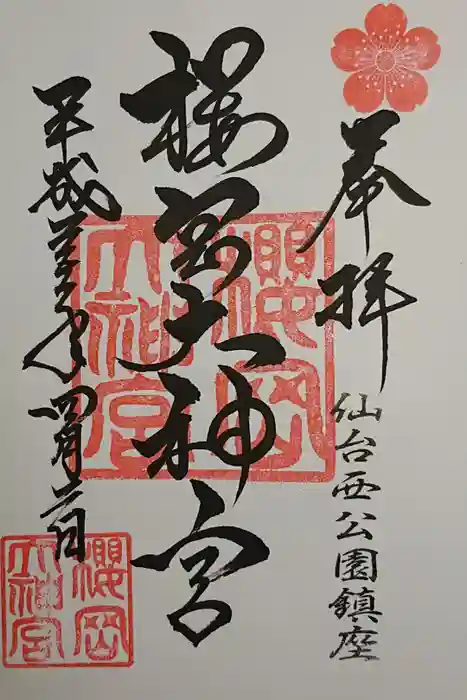 奉拝
仙台西公園鎮座
桜岡大神宮
櫻岡大神宮
平成年四月日
櫻岡大神宮